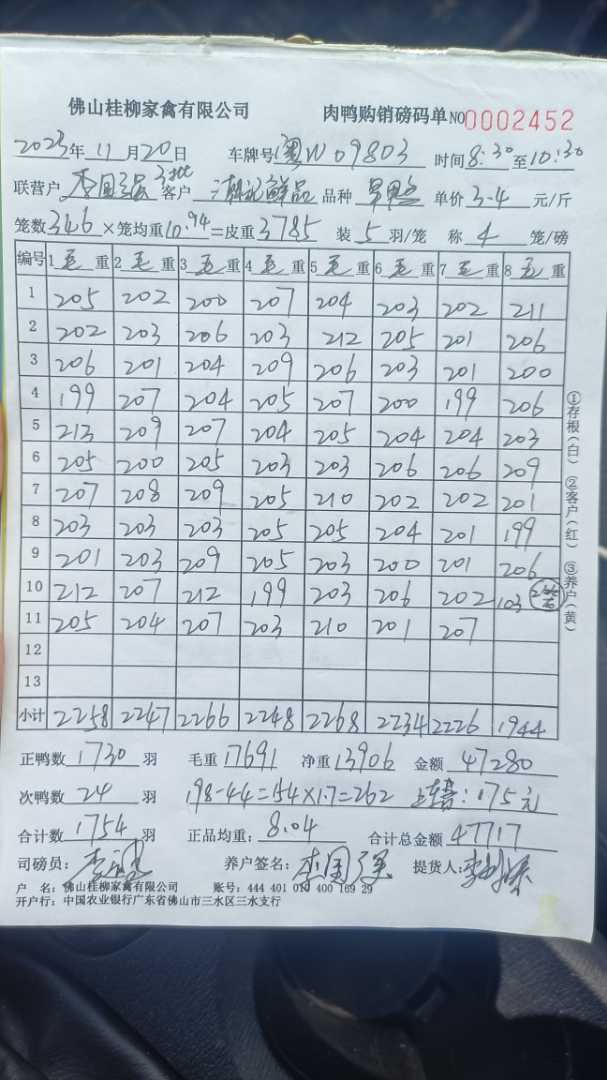 佛山桂柳家禽有限公司 肉鸭购销磅码单 NO 0002452
2023年11月20日 车牌号 粤W09803 时间 8:30 至 10:30
联营户 李国强 3批 客户 潮记鲜品 品种 单价 3.4 元/斤
笼数 346 ×笼均重 10.94 =皮重 3785 装 5 羽/笼 称 4 笼/磅
编号 1 毛 重 2 毛 重 3 毛 重 4 毛 重 5 毛 重 6 毛 重 7 毛 重 8 毛 重
1 205 202 200 207 204 203 202 211
2 202 203 206 203 212 205 201 206
3 206 201 204 209 206 203 201 200
4 199 207 204 205 207 200 199 206
5 213 209 207 204 205 204 204 203
6 205 200 205 203 203 206 206 209
7 207 208 209 205 210 202 202 201
8 203 203 203 205 205 204 201 199
9 201 203 209 205 203 200 201 206
10 212 207 212 199 203 206 202 103 2笼
11 205 204 207 203 210 201 207
12
13
小计 2258 2247 2266 2248 2268 2234 2226 1944
①存根(白) ②客户(红) ③养户(黄)
正鸭数 1730 羽 毛重 17691 净重 13906 金额 47280
次鸭数 24 羽 198-44=154×1.7=262 上车费:175元
合计数 1754 羽 正品均重: 8.04 合计总金额 47717
司磅员: 养户签名: 李国强 提货人:
户 名: 佛山桂柳家禽有限公司 账号: 444 401 010 400 169 29
开户行: 中国农业银行广东省佛山市三水区三水支行